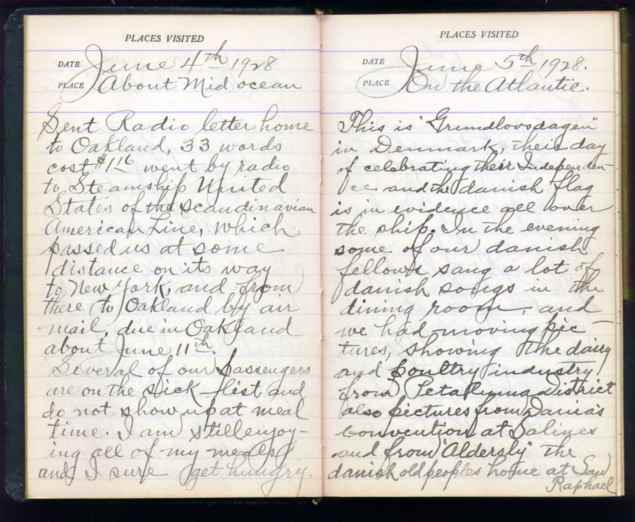 PLACES VISITED
DATE June 4th 1928
PLACE About Mid ocean
Sent Radio letter home
to Oakland, 33 words
cost $1.16 went by radio
to Steamship United
States of the Scandinavian
American Line, which
passed us at some
distance on its way
to New York, and from
there to Oakland by air
mail, due in Oakland
about June 11th.
Several of our passengers
are on the sick-list and
do not show up at meal
time. I am still enjoy-
ing all of my meals
and I sure get hungry.
PLACES VISITED
DATE June 5th 1928.
PLACE On the Atlantic.
This is "Grundlovsdagen"
in Denmark, their day
of celebrating their Independen-
ce and the danish flag
is in evidence all over
the ship. In the evening
some of our danish
fellows sang a lot of
danish songs in the
dining room, and
we had moving pic-
tures, showing the dairy
and poultry industry
from Petaluma district
also pictures from Dania's
convention at Salinas
and from "Aldersly" the
danish old peoples home at San
Raphael